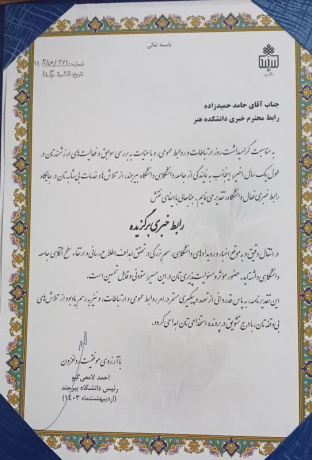 باسمه تعالی
جناب آقای حامد حمیدزاده
رابط محترم خبری دانشکده هنر
به مناسبت گرامیداشت روز ارتباطات و روابط عمومی، و با عنایت به بررسی سوابق و فعالیت‌های ارزشمندتان در
طول یک سال اخیر، اینجانب به نمایندگی از جامعه دانشگاهی دانشگاه بیرجند، از تلاش‌ها و خدمات بی‌شائبه‌تان در جایگاه
رابط خبری فعال دانشگاه، تقدیر می‌نمایم. جنابعالی با ایفای نقش
رابط خبری برگزیده
در انتقال دقیق و به موقع اخبار و رویدادهای دانشگاهی، سهم بزرگی در تحقق اهداف اطلاع‌رسانی و ارتقاء سطح آگاهی جامعه
دانشگاهی داشته‌اید. حضور موثر و مسئولیت‌پذیری‌تان در این مسیر، ستودنی و قابل تحسین است.
این تقدیرنامه، به پاس قدردانی از تعهد و پیگیری مستمر در امر روابط عمومی و ارتباطات، و نیز به رسم یادبود از تلاش‌های
بی‌وقفه‌تان، با درج تشویق در پرونده استخدامی‌تان اهدا می‌گردد.
با آرزوی موفقیت روزافزون
احمد لامعی گیو
رئیس دانشگاه بیرجند
(اردیبهشت‌ماه ۱۴۰۳)